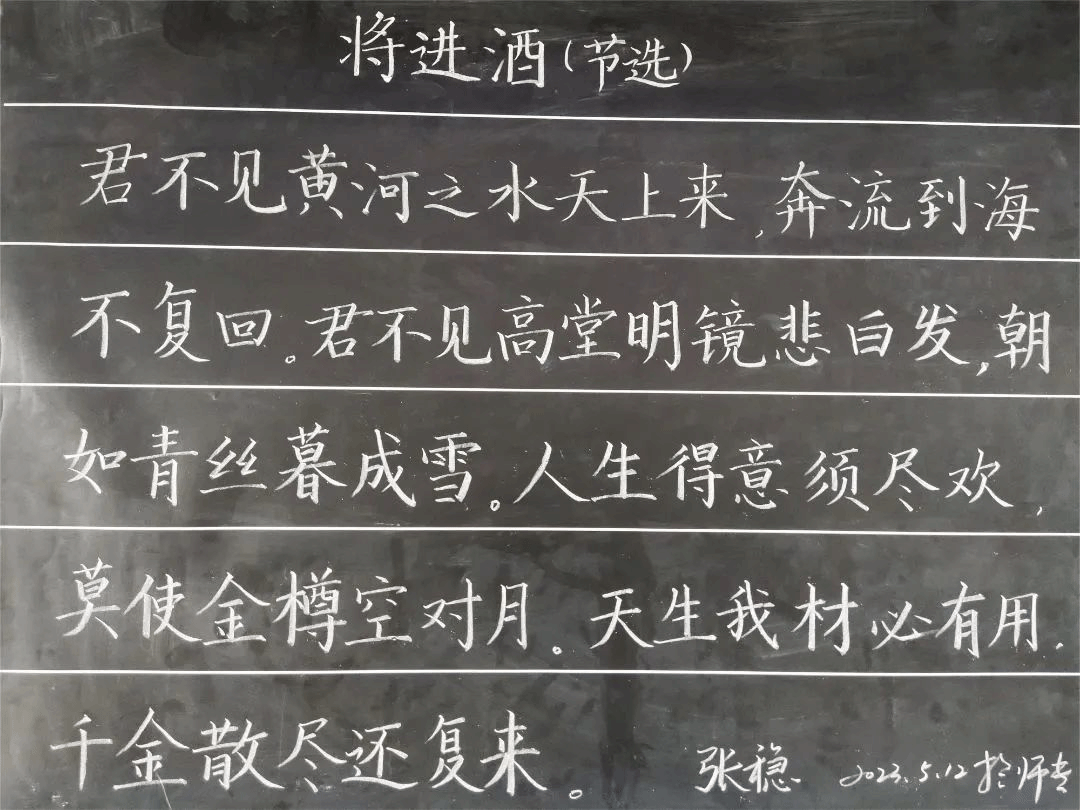 将进酒（节选）
君不见黄河之水天上来,奔流到海
不复回。君不见高堂明镜悲白发,朝
如青丝暮成雪。人生得意须尽欢,
莫使金樽空对月。天生我材必有用.
千金散尽还复来。 张稳 2023.5.12 于师专